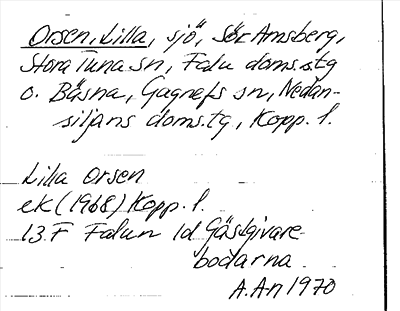 Orsen, Lilla, sjö, sör Amsberg,
Stora Tuna sn, Falu doms.tg
o. Bäsna, Gagnefs sn, Nedan-
siljans doms.tg, Kopp. l.
Lilla Orsen
ek (1968) Kopp. l.
13 F Falun 1d Gästgivare
bodarna
A.An 1970